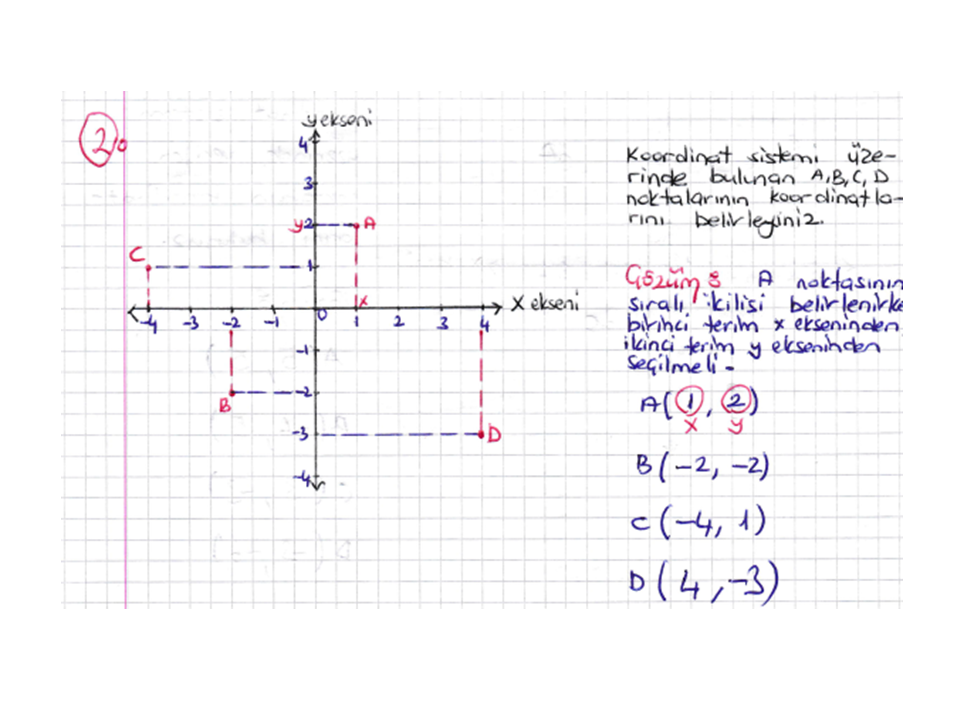 2.
y ekseni
4
3
y 2 A
C
1
x
x ekseni
-4 -3 -2 -1 0 1 2 3 4
-1
-2
B
-3 D
-4
Koordinat sistemi üze-
rinde bulunan A,B,C,D
noktalarının koordinatla-
rını belirleyiniz.
Çözüm: A noktasının
sıralı ikilisi belirlenirke
birinci terim x ekseninden
ikinci terim y ekseninden
seçilmeli.
A(1, 2)
x y
B(-2, -2)
C(-4, 1)
D(4, -3)